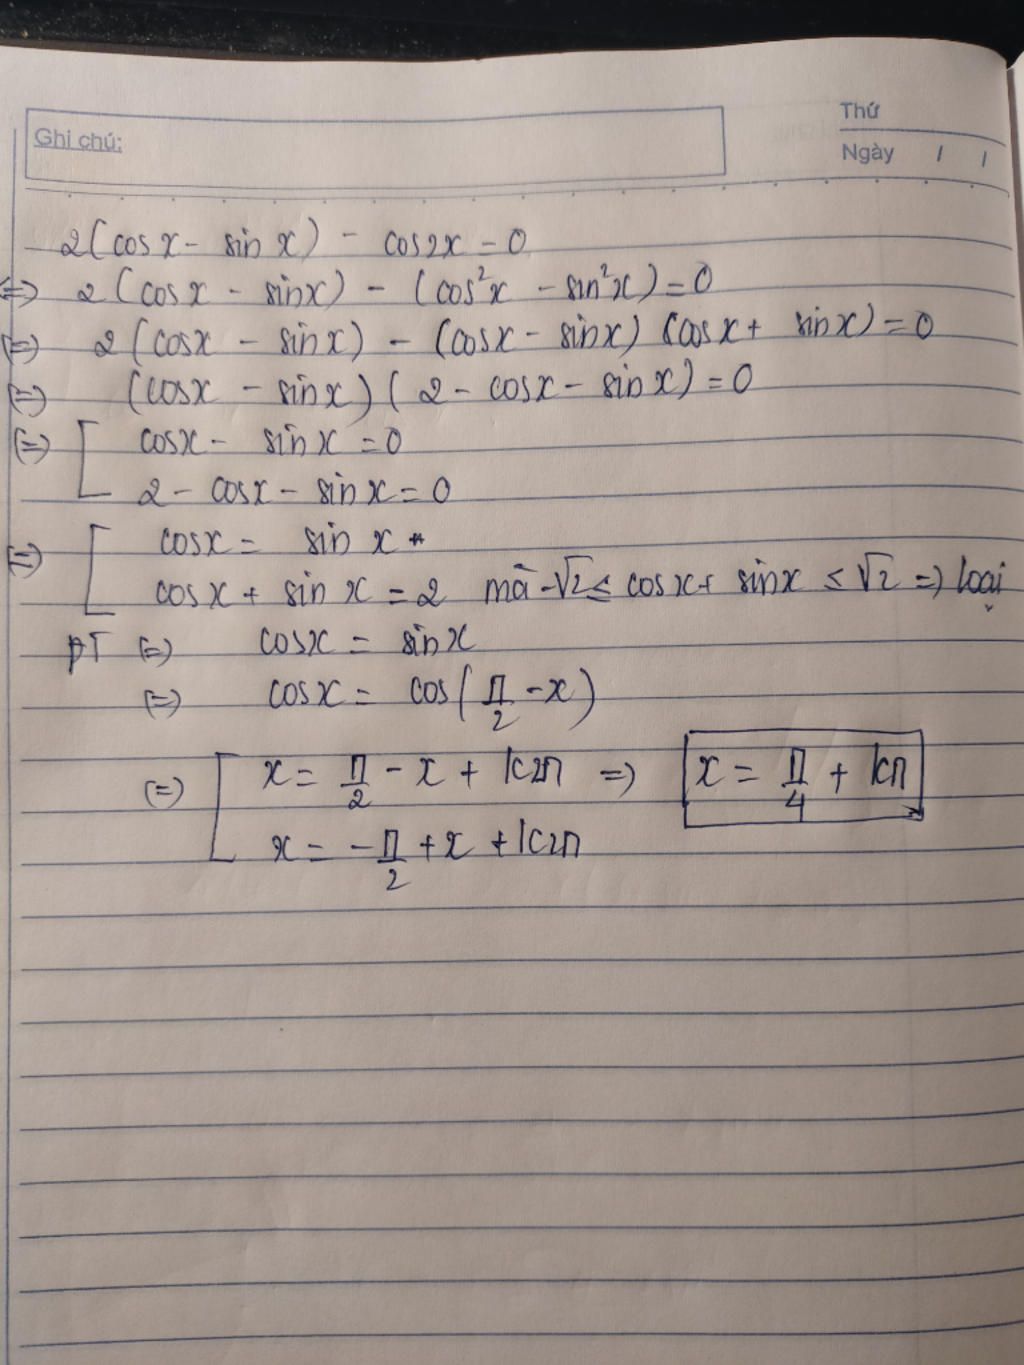 Thứ
Ghi chú:
Ngày / /
2(cosx - sin x) - cos2x = 0
(=) 2(cosx - sinx) - (cos²x - sin²x) = 0
(=) 2(cosx - sinx) - (cosx - sinx) (cosx + sinx) = 0
(=) (cosx - sinx) (2 - cosx - sinx) = 0
(=) [ cosx - sinx = 0
2 - cosx - sinx = 0
(=) [ cosx = sin x
cosx + sin x = 2 mà -√2 ≤ cosx + sinx ≤ √2 => loại
PT (=) cosx = sinx
(=) cosx = cos(π/2 - x)
(=) [ x = π/2 - x + k2π => x = π/4 + kπ
x = -π/2 + x + k2π